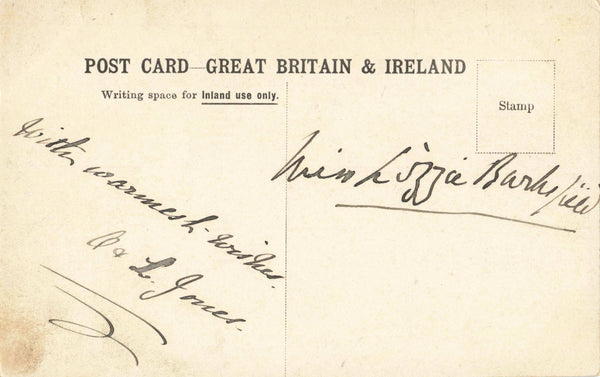 POST CARD—GREAT BRITAIN & IRELAND
Writing space for Inland use only.
Stamp
With warmest wishes.
& L. Jones.
Miss Lizzie Barkfield